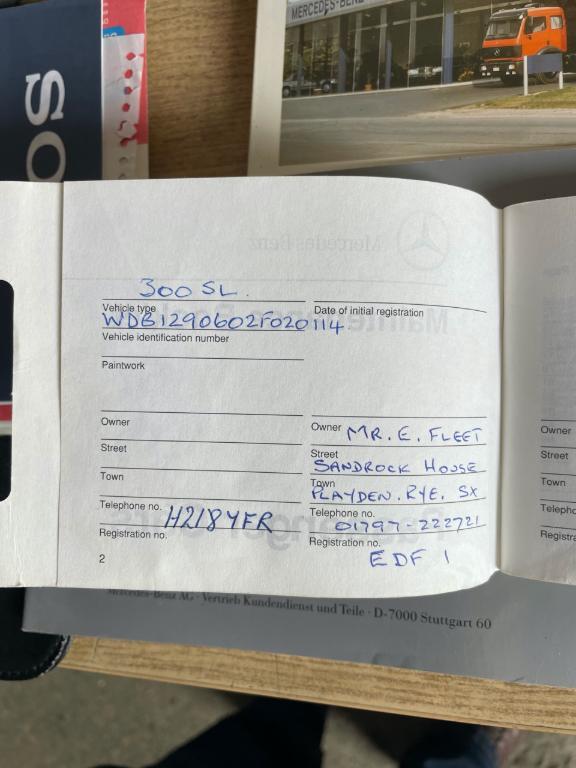 MERCEDES-BENZ
SO
Mercedes Benz
300 SL.
Vehicle type
Date of initial registration
WDB1290602F020114
Vehicle identification number
Paintwork
Owner
Street
Town
Telephone no.
H218YFR
Registration no.
2
Owner MR. E. FLEET
Street
SANDROCK HOUSE
Town
PLAYDEN. RYE. SX
Telephone no.
01797-222721
Registration no.
EDF 1
Owner
Street
Town
Mercedes-Benz AG · Vertrieb Kundendienst und Teile · D-7000 Stuttgart 60